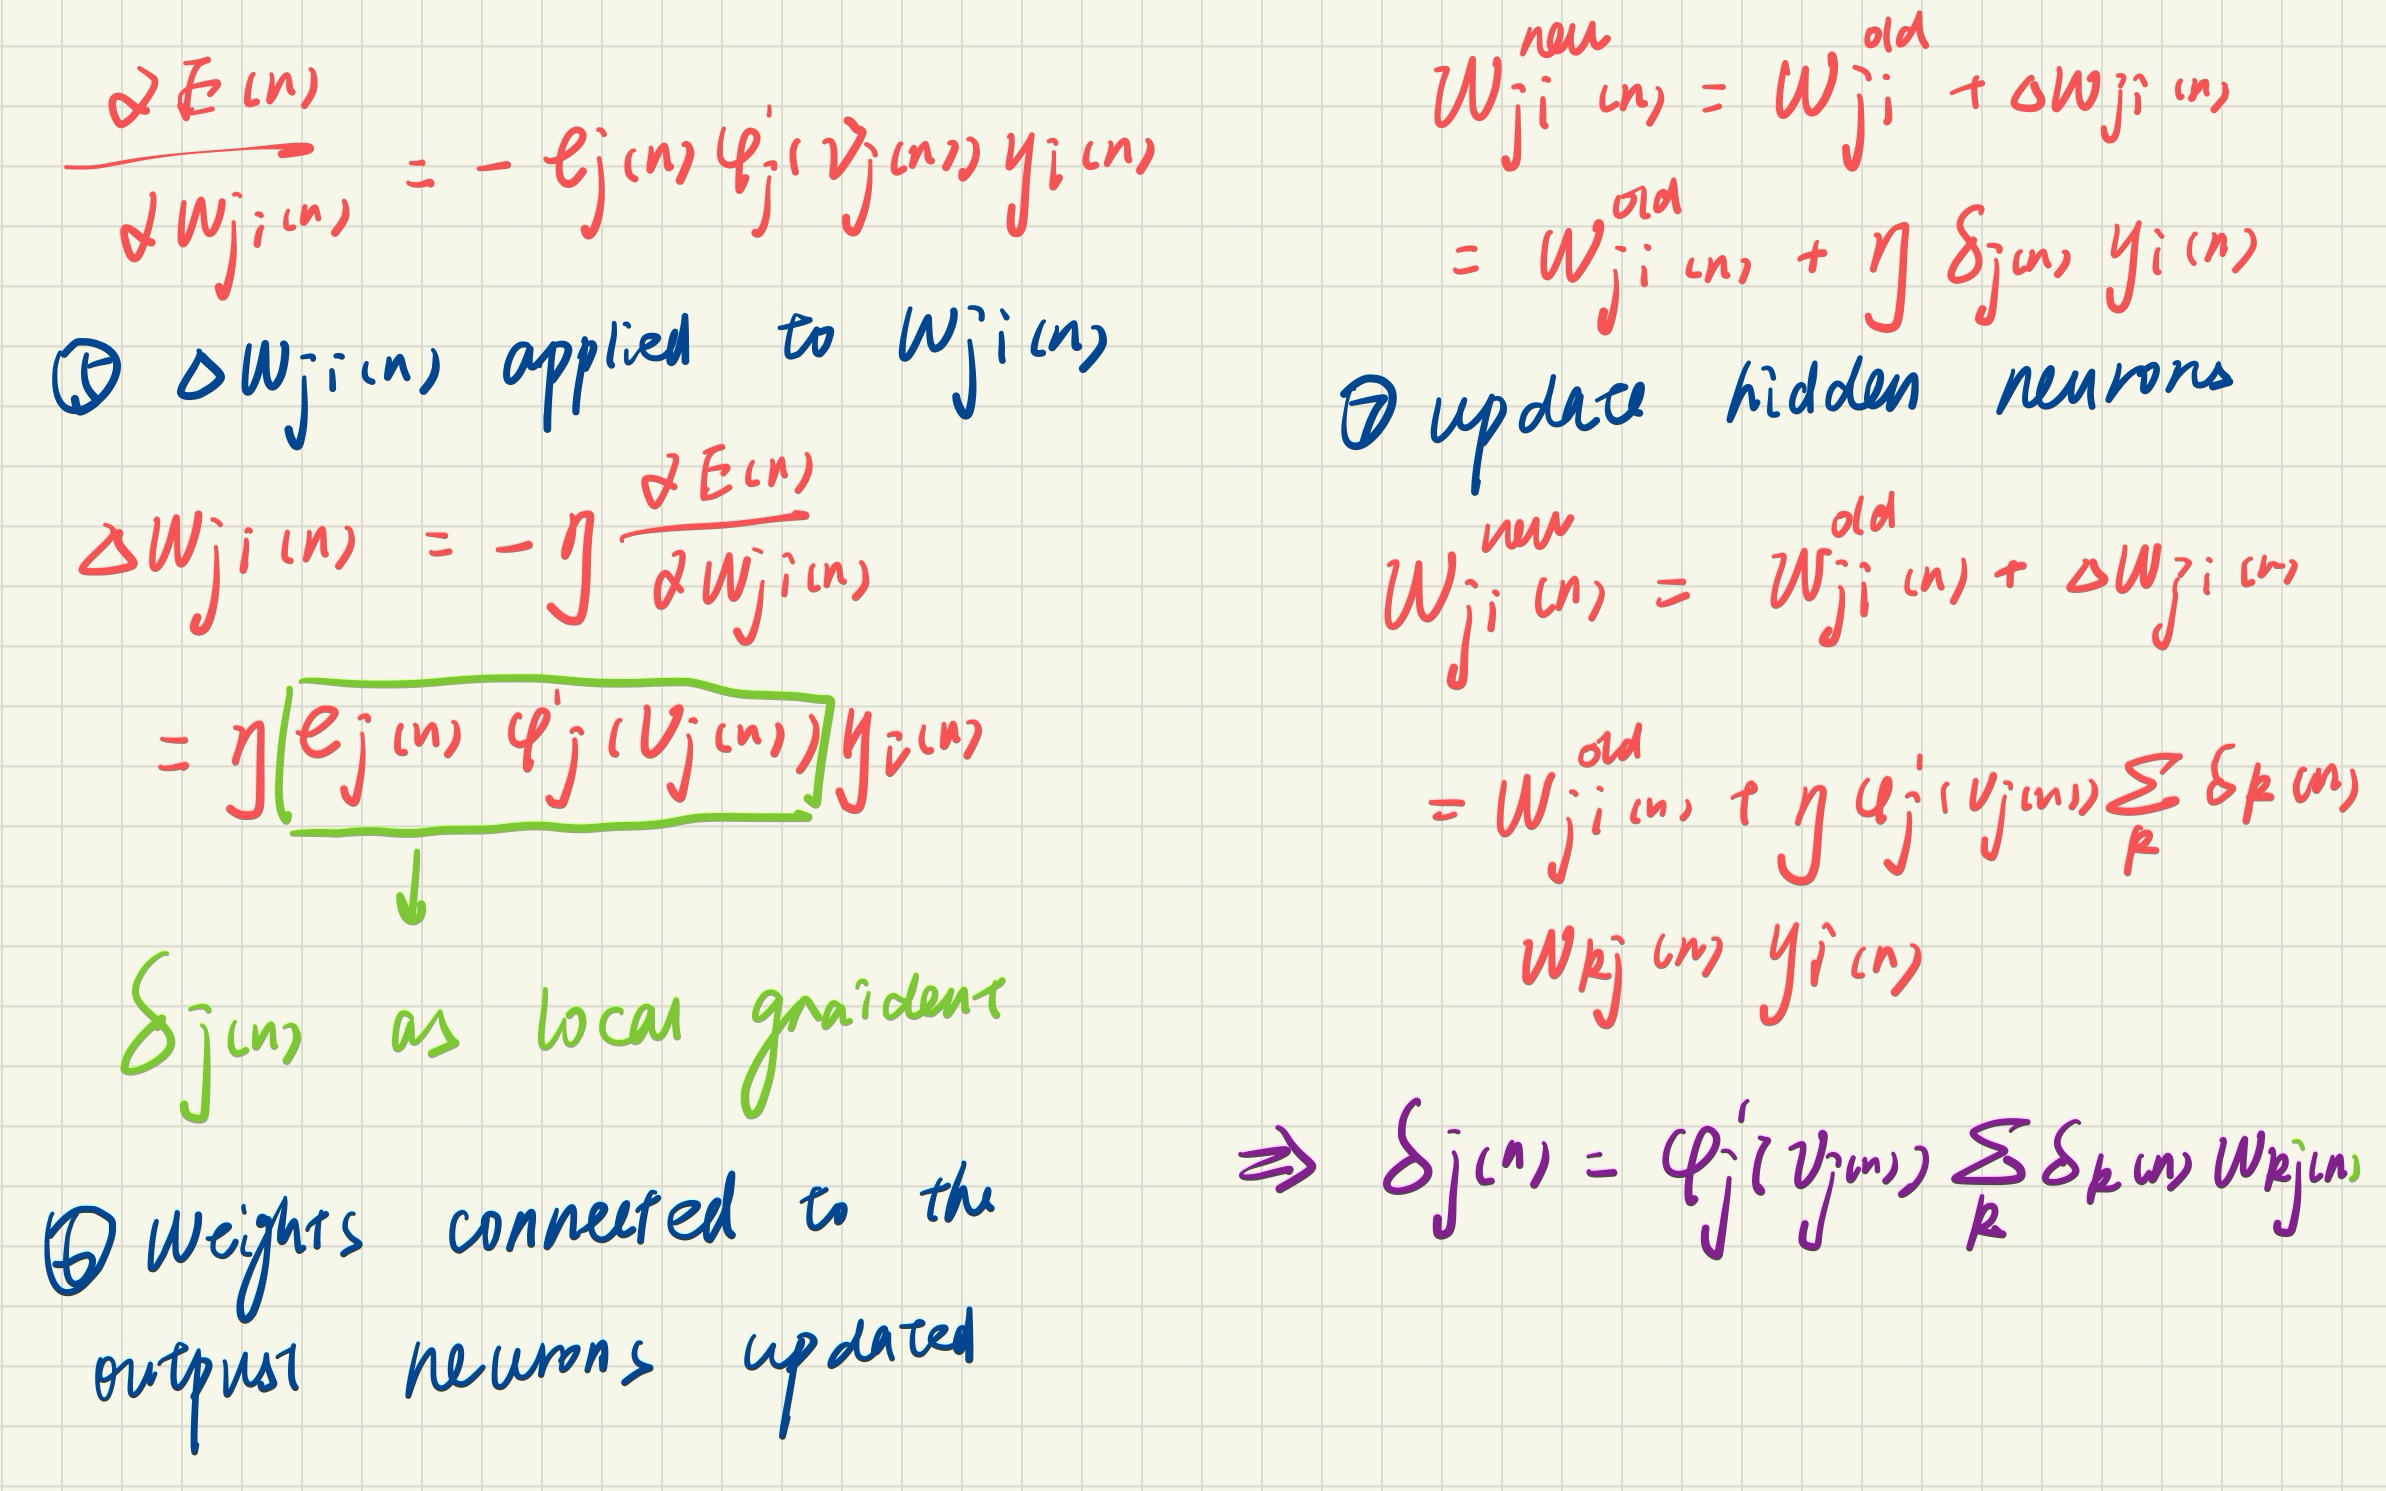 ∂E(n) / ∂Wji(n) = - ej(n) φj'(Vj(n)) yi(n)
⑤ ΔWji(n) applied to Wji(n)
ΔWji(n) = - η ∂E(n) / ∂Wji(n)
= η ej(n) φj'(Vj(n)) yi(n)
↓
δj(n) as local graident
⑥ Weights connected to the
output neurons updated
Wji^new(n) = Wji^old + ΔWji(n)
= Wji^old(n) + η δj(n) yi(n)
⑦ update hidden neurons
Wji^new(n) = Wji^old(n) + ΔWji(n)
= Wji^old(n) + η φj'(Vj(n)) Σk δk(n)
Wkj(n) yi(n)
⇒ δj(n) = φj'(Vj(n)) Σk δk(n) Wkj(n)